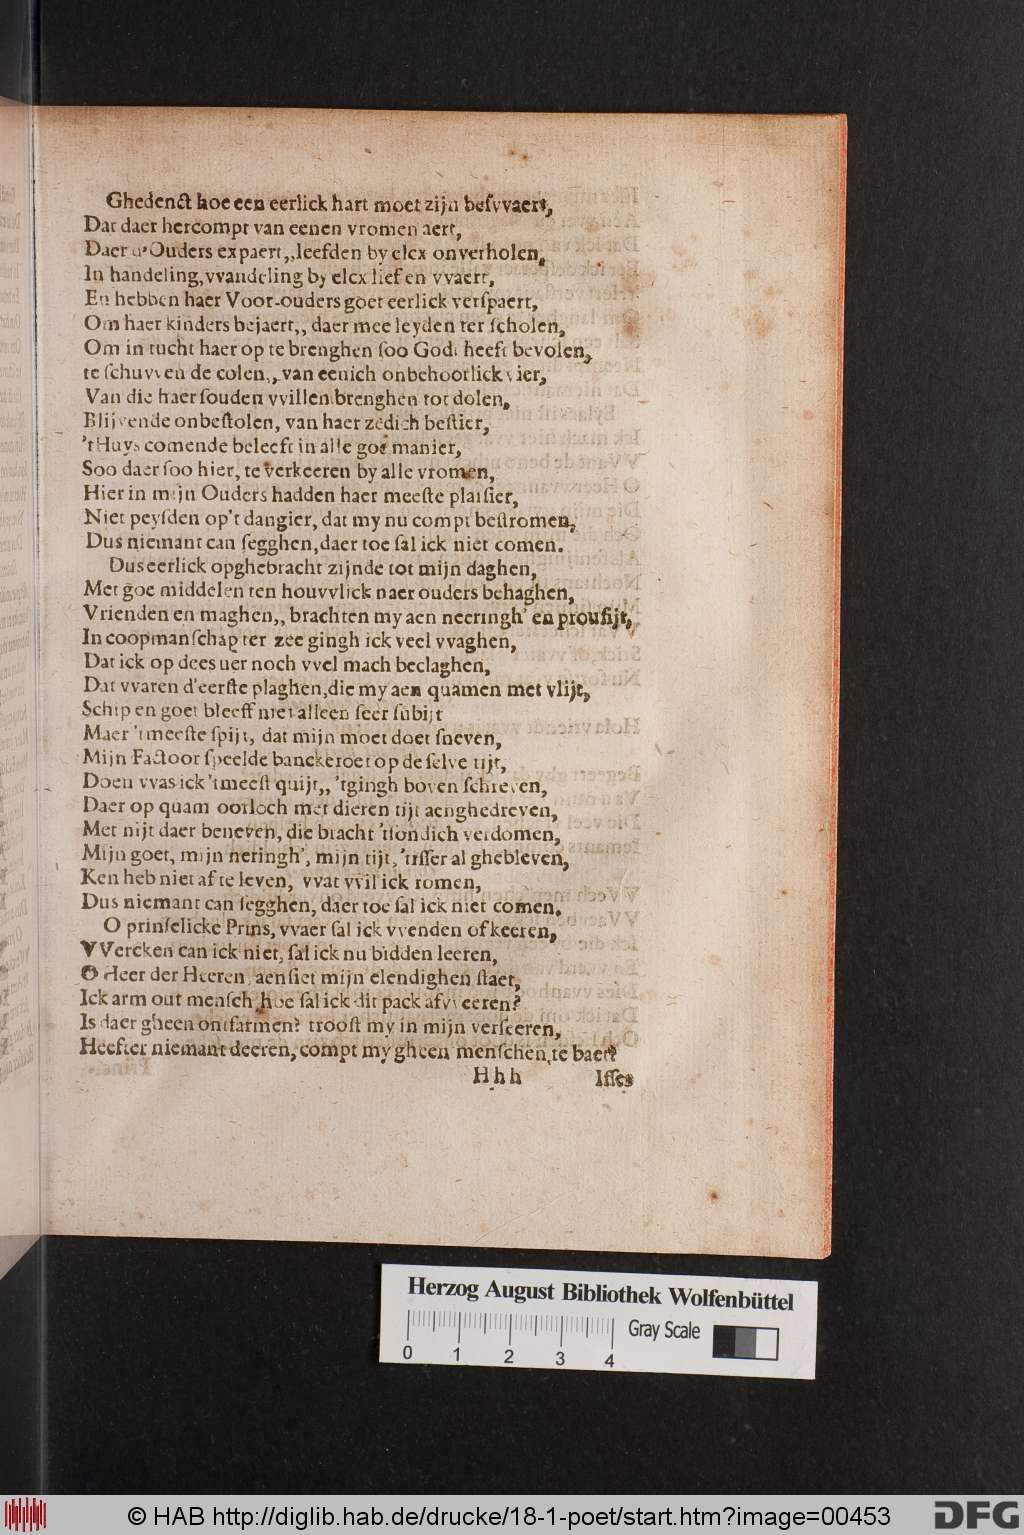 Ghedenct hoe een eerlick hart moet zijn besvvaert,
Dat daer hercompt van eenen vromen aert,
Daer d'Ouders expaert,, leefden by elcx onverholen,
In handeling, vvandeling by elcx lief en vvaert,
En hebben haer Voor-ouders goet eerlick verspaert,
Om haer kinders bejaert,, daer mee leyden ter scholen,
Om in tucht haer op te brenghen soo Godt heeft bevolen,
te schuvven de colen,, van eenich onbehoorlick vier,
Van die haer souden vvillen brenghen tot dolen,
Blijvende onbestolen, van haer zedich bestier,
't Huys comende beleeft in alle goe manier,
Soo daer soo hier, te verkeeren by alle vromen,
Hier in mijn Ouders hadden haer meeste plaisier,
Niet peysden op't dangier, dat my nu compt bestromen,
Dus niemant can segghen, daer toe sal ick niet comen.
Dus eerlick opghebracht zijnde tot mijn daghen,
Met goe middelen ten houvvlick naer ouders behaghen,
Vrienden en maghen,, brachten my aen neeringh' en proufijt,
In coopmanschap ter zee gingh ick veel vvaghen,
Dat ick op dees uer noch vvel mach beclaghen,
Dat vvaren d'eerste plaghen, die my aen quamen met vlijt,
Schip en goet bleeff niet alleen seer subijt
Maer 't meeste spijt, dat mijn moet doet sneven,
Mijn Factoor speelde banckeroet op de selve tijt,
Doen vvas ick 't meest quijt,, 't gingh boven schreven,
Daer op quam oorloch met dieren tijt aenghedreven,
Met nijt daer beneven, die bracht 't sondich verdomen,
Mijn goet, mijn neringh', mijn tijt, 't isser al ghebleven,
Ken heb niet af te leven, vvat vvil ick romen,
Dus niemant can segghen, daer toe sal ick niet comen.
O prinselicke Prins, vvaer sal ick vvenden of keeren,
VVercken can ick niet, sal ick nu bidden leeren,
O Heer der Heeren, aensiet mijn elendighen staet,
Ick arm out mensch, hoe sal ick dit pack afvveeren?
Is daer gheen ontfarmen? troost my in mijn verseeren,
Heefter niemant deeren, compt my gheen menschen te baet?
Hhh
Isses
Herzog August Bibliothek Wolfenbüttel
Gray Scale
0 1 2 3 4
© HAB http://diglib.hab.de/drucke/18-1-poet/start.htm?image=00453
DFG